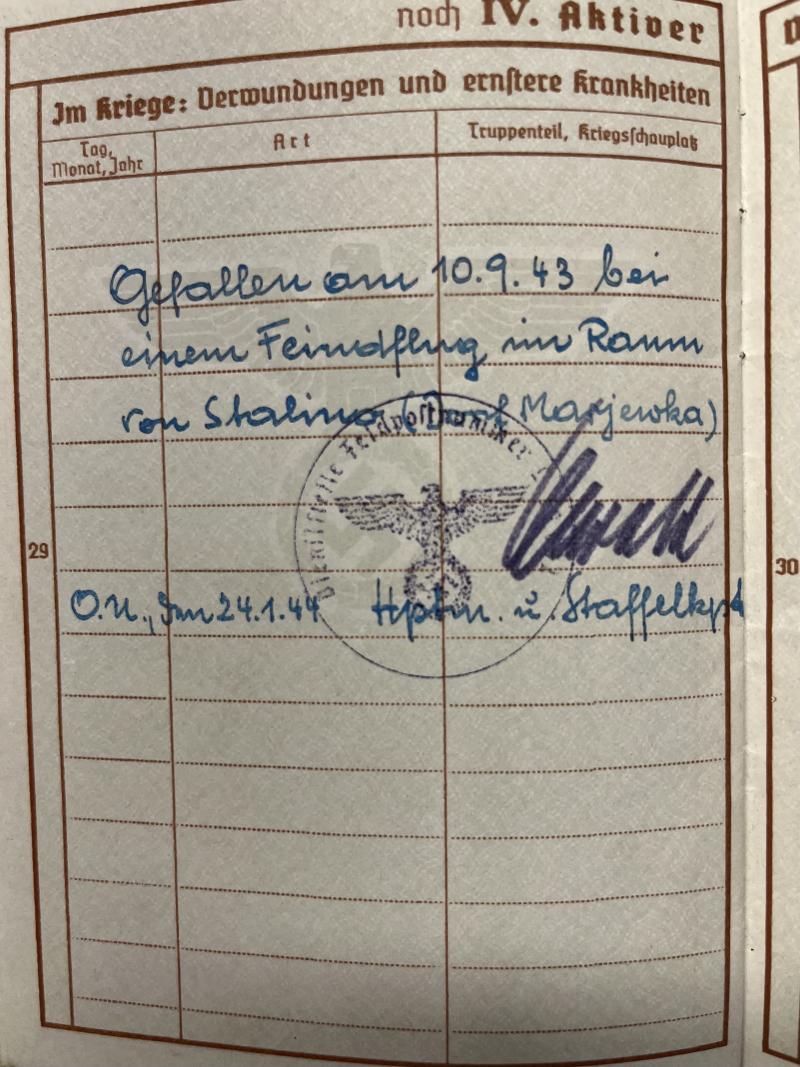 noch IV. Aktiver
Im Kriege: Verwundungen und ernstere Krankheiten
Tag, Monat, Jahr
Art
Truppenteil, Kriegsschauplatz
Gefallen am 10.9.43 bei
einem Feindflug im Raum
von Stalino (Dorf Marjewka)
Dienststelle Feldpostnummer
29
30
O.U., den 24.1.44 Hptm. u. Staffelkpt